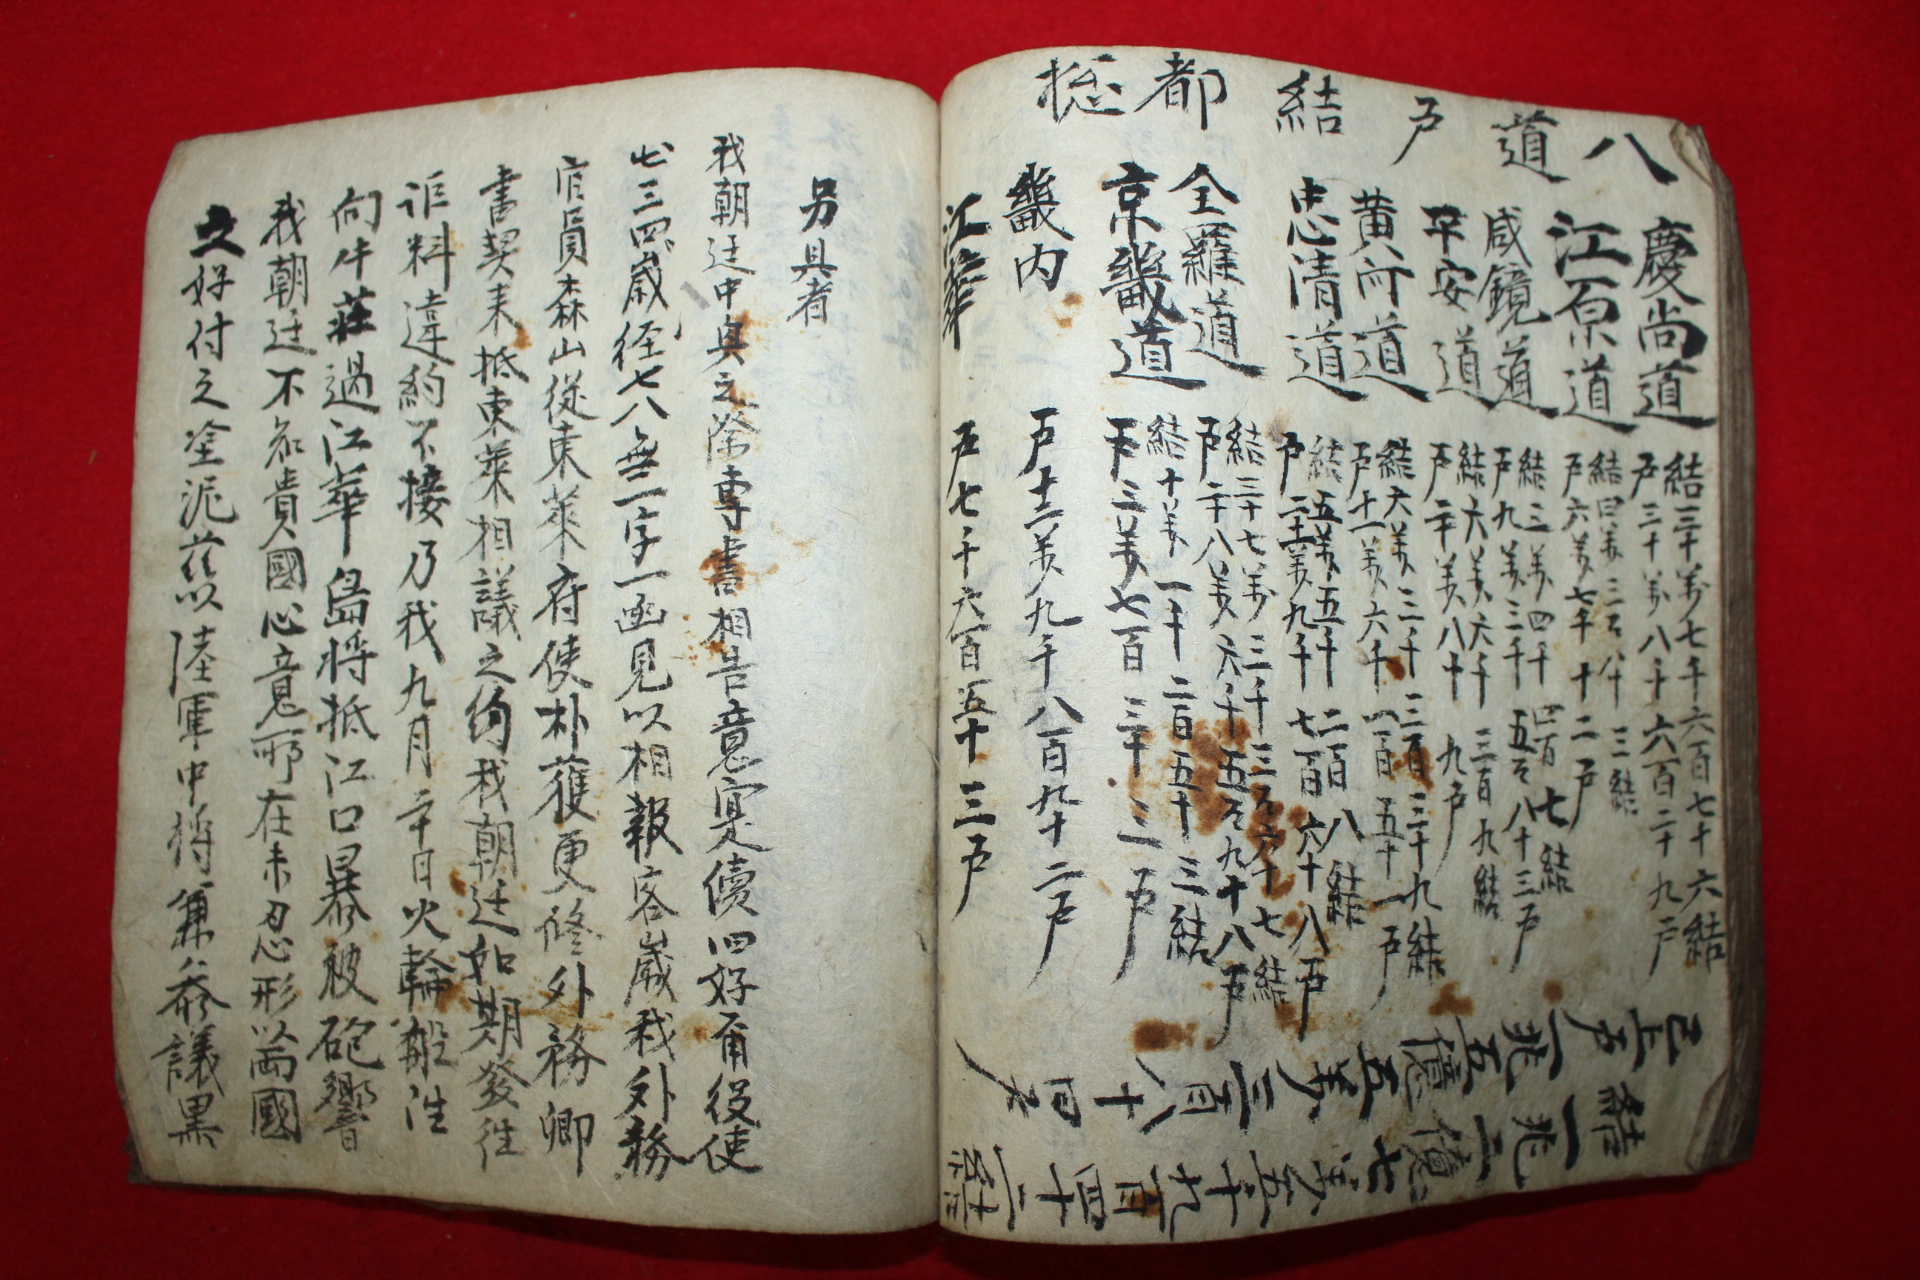 八道戶結都摠
慶尚道
結三十万七千六百七十六結
戶三十万八千六百二十九戶
江原道
結四万三百八十三結
戶六万七千十二戶
咸鏡道
結三万四千四百七結
戶九万三千五百八十三戶
平安道
結六万六千三百九結
戶二十万八十九戶
黃河道
結六万三千三百三十九結
戶十一万六千一百五十一戶
忠清道
結五万五千二百八結
戶二十二万九千七百六十八戶
全羅道
結三十七万三千三百六十七結
戶二十八万六千五百九十八戶
京畿道
結十万一千二百五十三結
戶三万七百三十三戶
畿内
戶十二万九千八百九十二戶
江華
戶七千六百五十三戶
己上戶一兆五億五万三百八十四戶
結一兆二億七万五千九百四十二結
另具者
我朝廷中具之際專書相告意寔續旧好甭役使
七三四歲径七八無二字一函見以相報客歲我外務
官員森山從東萊府使朴獲更修外務卿
書契来抵東萊相議之約我朝廷如期發往
詎料違約不接乃我九月二十日火輪船泩
向牛莊過江華島将抵江口暴被砲響
我朝廷不知貴國心意所在未忍形以兩國
之好付之塗泥茲以陸軍中将兼叅議黒